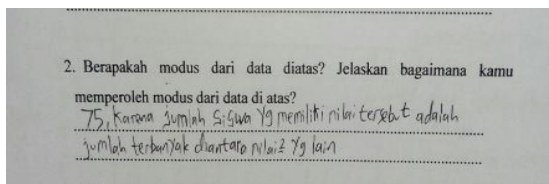 2. Berapakah modus dari data diatas? Jelaskan bagaimana kamu
memperoleh modus dari data di atas?
75, karena jumlah siswa yg memiliki nilai tersebut adalah
jumlah terbanyak diantara nilai2 yg lain